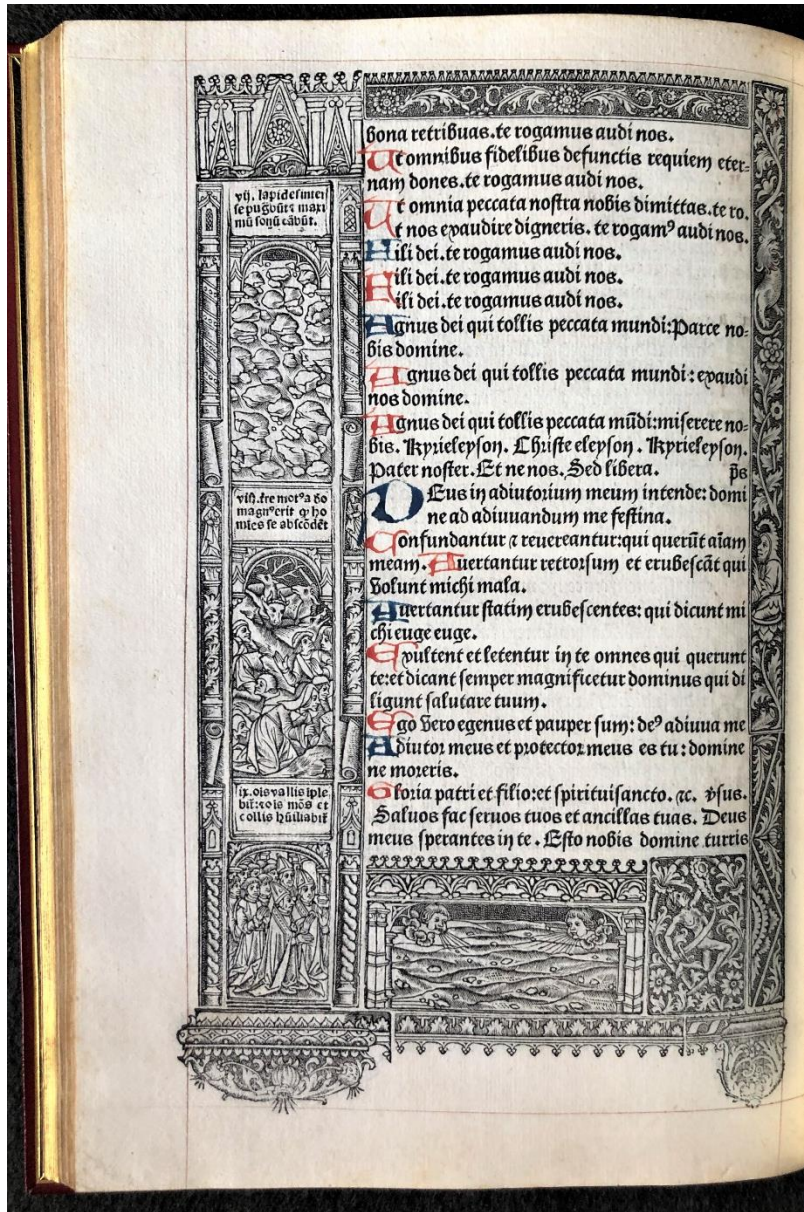 vij. lapides inter
se pugbūt ⁊ maxi
mū sonū dabūt.
viij. tre motꝰ a do
magnꝰ erit ꝙ ho
mies se abscōdēt
ix. ois vallis iple
bit: ⁊ ois mōs et
collis hūiliabit
bona retribuas. te rogamus audi nos.
Ut omnibus fidelibus defunctis requiem eter-
nam dones. te rogamus audi nos.
Ut omnia peccata nostra nobis dimittas. te ro.
Ut nos exaudire digneris. te rogamꝰ audi nos.
Fili dei. te rogamus audi nos.
Fili dei. te rogamus audi nos.
Fili dei. te rogamus audi nos.
Agnus dei qui tollis peccata mundi: Parce no-
bis domine.
Agnus dei qui tollis peccata mundi: exaudi
nos domine.
Agnus dei qui tollis peccata mūdi: miserere no-
bis. Kyrieleyson. Christe eleyson. Kyrieleyson.
Pater noster. Et ne nos. Sed libera. p̄s
DEus in adiutorium meum intende: domi
ne ad adiuvandum me festina.
Confundantur ⁊ revereantur: qui querūt aīam
meam. Avertantur retrorsum et erubescāt qui
volunt michi mala.
Avertantur statim erubescentes: qui dicunt mi
chi euge euge.
Exultent et letentur in te omnes qui querunt
te: et dicant semper magnificetur dominus qui di
ligunt salutare tuum.
Ego vero egenus et pauper sum: deꝰ adiuva me
Adiutor meus et protector meus es tu: domine
ne moreris.
Gloria patri et filio: et spirituisancto. ⁊c. v̄sus.
Salvos fac servos tuos et ancillas tuas. Deus
meus sperantes in te. Esto nobis domine turris